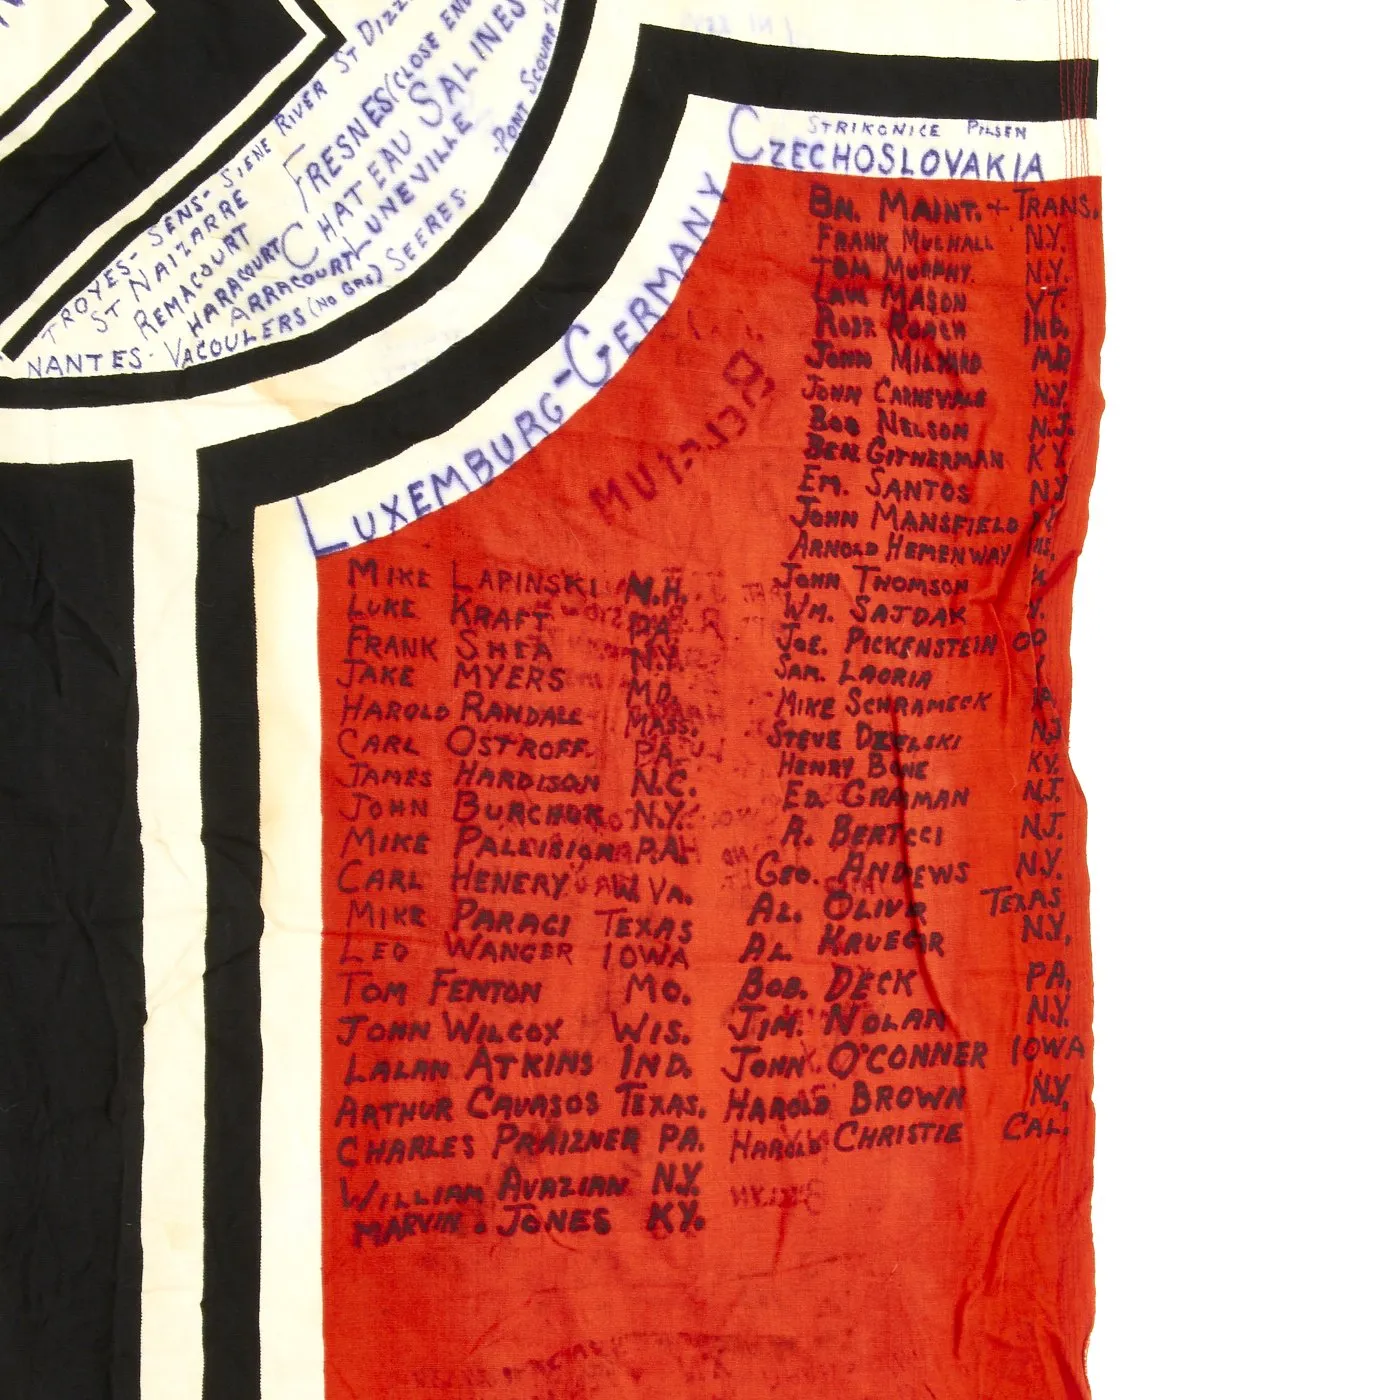 RIVER ST DIZZ
FRESNES (CLOSE EN
CHATEAU SALINES
LUNEVILLE
PONT SCOURF
TROYES- SENS- SIENE
ST NAIZARRE
REMACOURT
HARACOURT
ARRACOURT
NANTES- VACOULERS (NO GAS) SEERES.
STRIKONICE PILSEN
CZECHOSLOVAKIA
LUXEMBURG-GERMANY
BN. MAINT. + TRANS.
FRANK MULHALL N.Y.
TOM MURPHY. N.Y.
LAW MASON VT.
ROBT ROACH IND.
JOHN MILNARD MD
JOHN CARNEVALE N.Y.
BOB NELSON N.J.
BEN. GITHERMAN KY
EM. SANTOS N.Y
JOHN MANSFIELD
ARNOLD HEMENWAY
JOHN THOMSON
WM. SAJDAK Y.
JOE. PICKENSTEIN OO
SAM. LAORIA
MIKE SCHRAMECK
STEVE DZELSKI N.J
HENRY BONE KY.
ED. GRAMAN N.J.
A. BERTCCI N.J.
GEO. ANDEWS N.Y.
AL. OLIVR TEXAS
AL KRUEGR N.Y,
BOB. DECK PA.
JIM. NOLAN N.Y.
JOHN O'CONNER IOWA
HAROLD BROWN N.Y.
HAROLD CHRISTIE CAL.
MIKE LAPINSKI N.H.
LUKE KRAFT PA.
FRANK SHEA N.Y.
JAKE MYERS MD.
HAROLD RANDALL MASS.
CARL OSTROFF PA.
JAMES HARDISON N.C.
JOHN BURCHOK N.Y.
MIKE PALLIBION PA.
CARL HENERY W.VA.
MIKE PARAGI TEXAS
LEO WANGER IOWA
TOM FENTON MO.
JOHN WILCOX WIS.
LALAN ATKINS IND.
ARTHUR CAVASOS TEXAS.
CHARLES PRAIZNER PA.
WILLIAM AVAZIAN N.Y.
MARVIN. JONES KY.